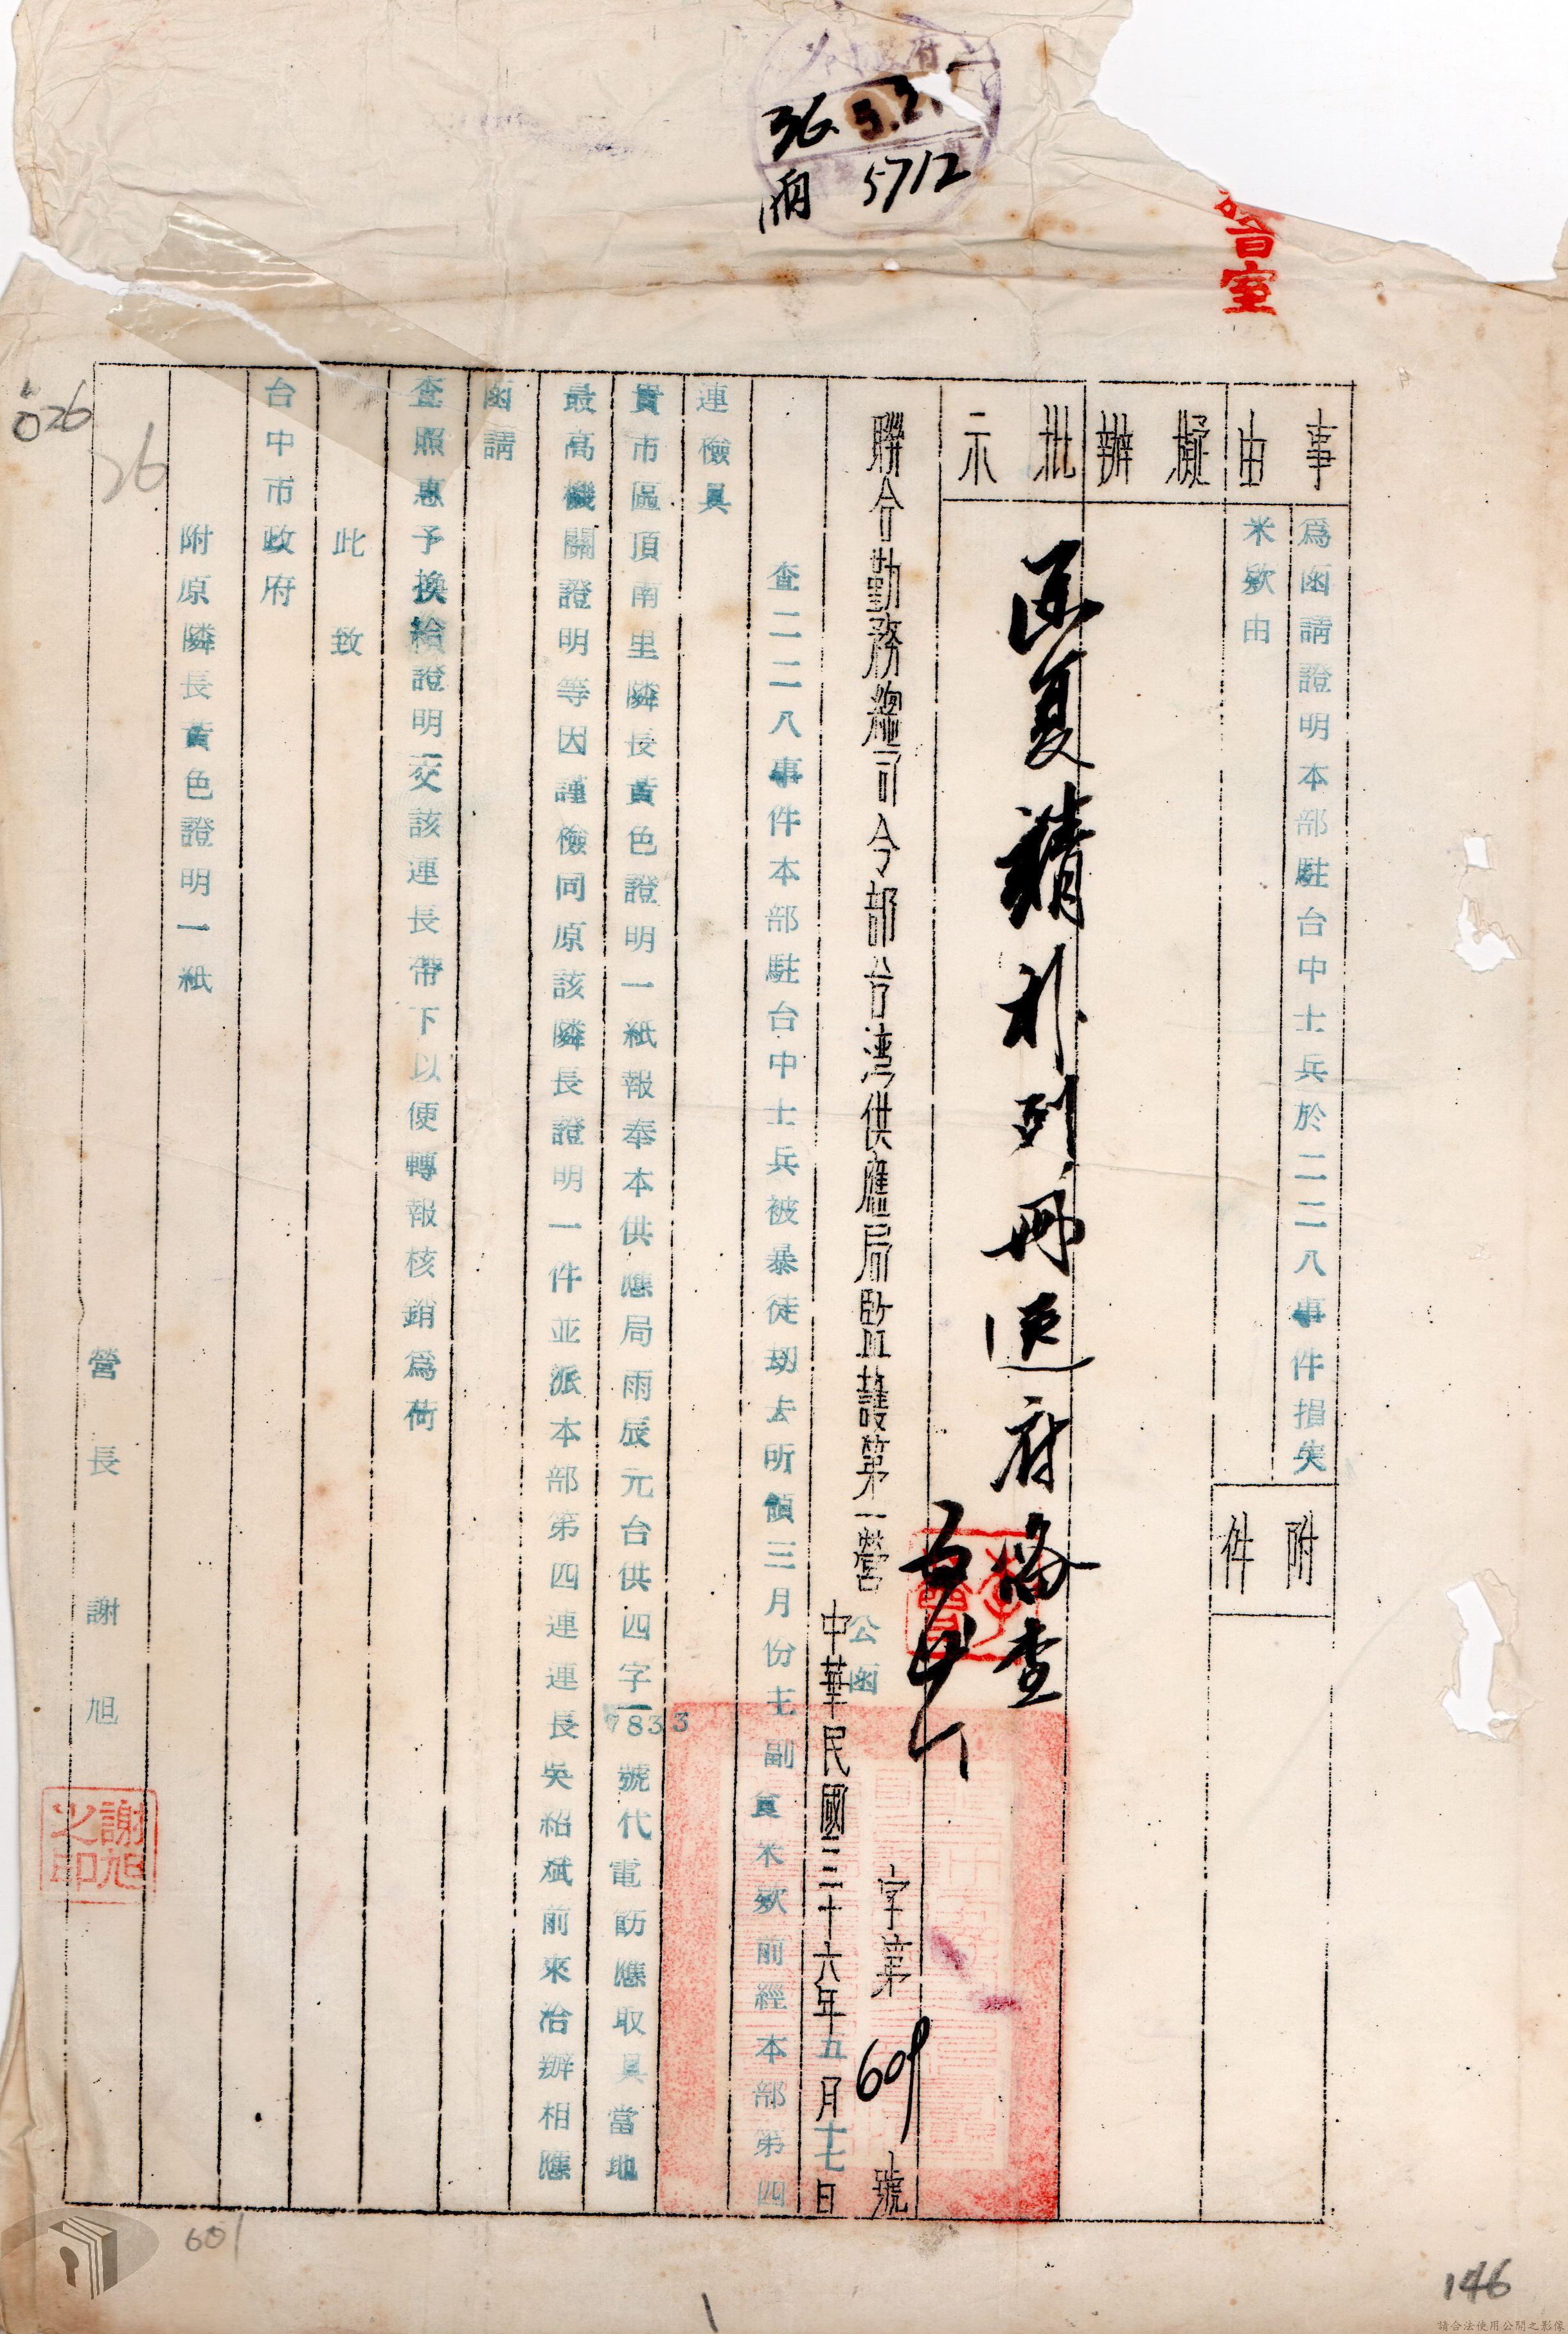 36. 5. 2
5712
室
事由
爲函請證明本部駐台中士兵於二二八事件損失
米欵由
附件
擬辦
批示
函复請補列冊送府备查
聯合勤務總司令部台湾供應局監護第一營公函
字第601號
中華民國三十六年五月十七日
查二二八事件本部駐台中士兵被暴徒刼去所領三月份主副食米欵前經本部第四
連檢具
貴市區頂南里隣長黃色證明一紙報奉本供應局雨辰元台供四字7833號代電飭應取具當地
最高機關證明等因謹檢同原該隣長證明一件並派本部第四連連長吳紹斌前來洽辦相應
函請
查照惠予換給證明一交該連長帶下以便轉報核銷爲荷
此致
台中市政府
附原隣長黃色證明一紙
營長謝旭
謝旭之印
026
26
601
146
請合法使用公開之影像